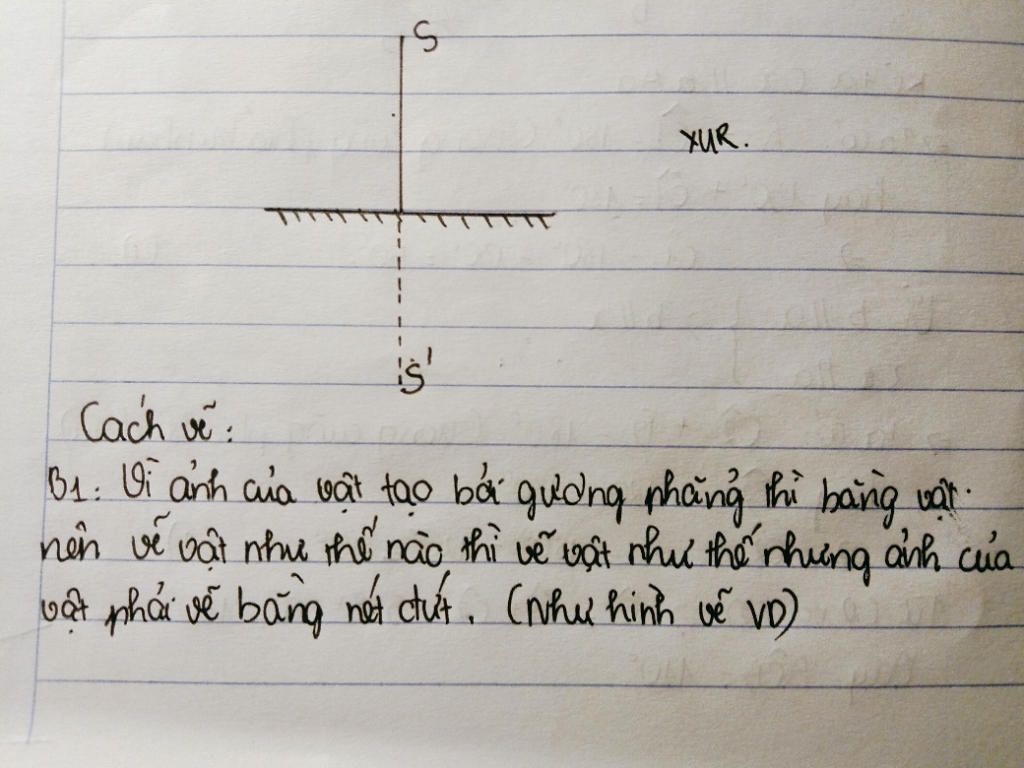 S
XUR.
S'
Cách vẽ:
B1: Vì ảnh của vật tạo bởi gương phẳng thì bằng vật.
nên vẽ vật như thế nào thì vẽ vật như thế nhưng ảnh của
vật phải vẽ bằng nét đứt. (Như hình vẽ VD)